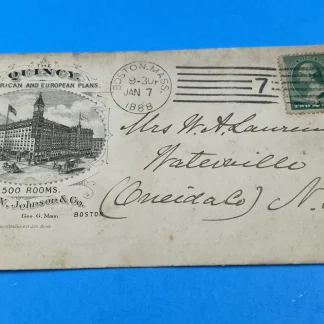 THE
QUINCY.
RICAN AND EUROPEAN PLANS.
500 ROOMS.
N. Johnson & Co.
Geo. G. Mann.
BOSTON
BOSTON, MASS.
9-30P
JAN 7
1888
7
TWO
Mrs W. A. Lawren
Waterville
(Oneida Co) N.